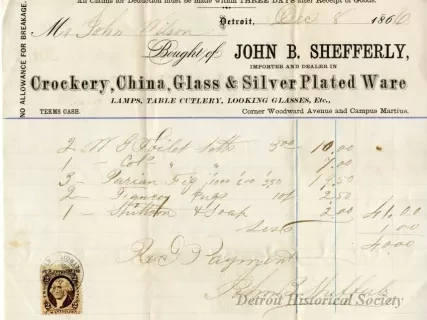 All Claims for Deduction must be made within THREE DAYS after Receipt of Goods.
NO ALLOWANCE FOR BREAKAGE.
Detroit, Dec 8 1866
Mr John Wilson
Bought of JOHN B. SHEFFERLY,
IMPORTER AND DEALER IN
Crockery, China, Glass & Silver Plated Ware
LAMPS, TABLE CUTLERY, LOOKING GLASSES, Etc.,
TERMS CASH. Corner Woodward Avenue and Campus Martius.
2 W G Toilet Setts 5.00 10.00
1 Col " " 7.00
3 Parian Fig
2 Cups 2.50
1 & Soap 2.00 41.00
1.00
40.00
Rec'd Payment
John B. Shefferly
Detroit Historical Society